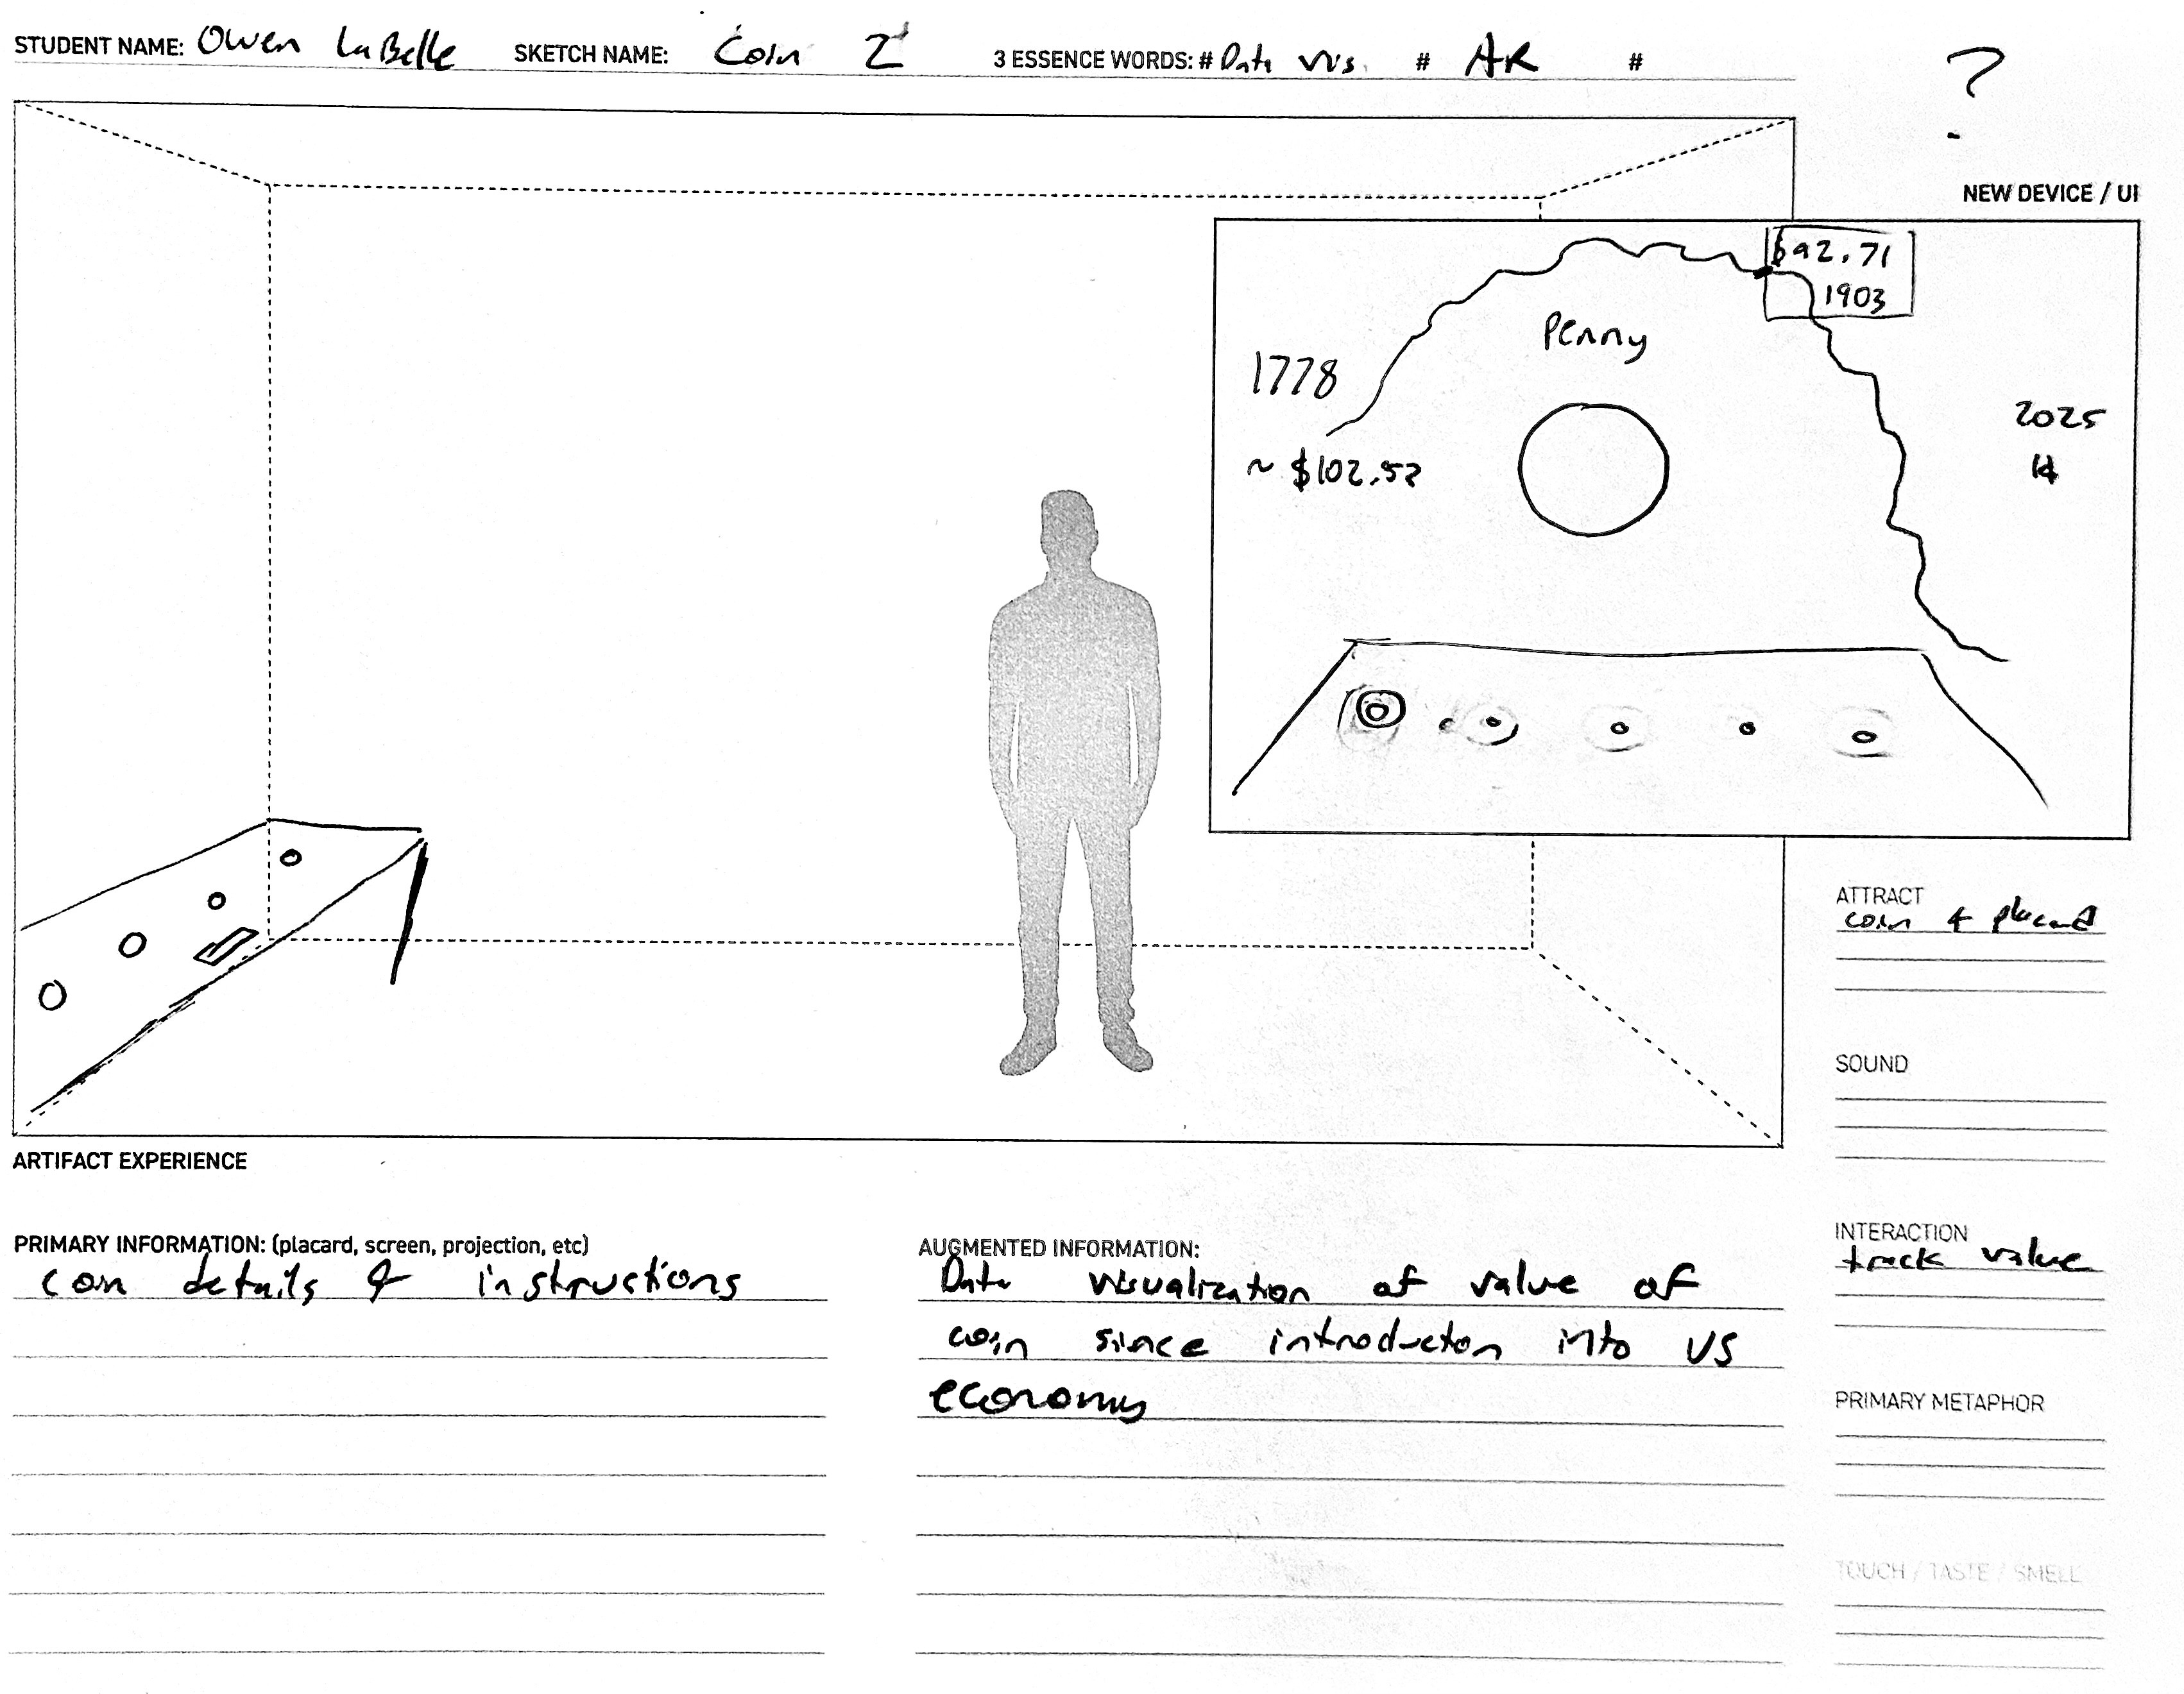 STUDENT NAME: Owen LaBelle SKETCH NAME: Coin 2 3 ESSENCE WORDS: # Data vis. # AR #
?
NEW DEVICE / UI
$92.71
1903
Penny
1778
~ $102.52
2025
1¢
ATTRACT
coin & placard
SOUND
INTERACTION
track value
PRIMARY METAPHOR
TOUCH / TASTE / SMELL
ARTIFACT EXPERIENCE
PRIMARY INFORMATION: (placard, screen, projection, etc)
coin details & instructions
AUGMENTED INFORMATION:
Data visualization of value of
coin since introducton into US
economy